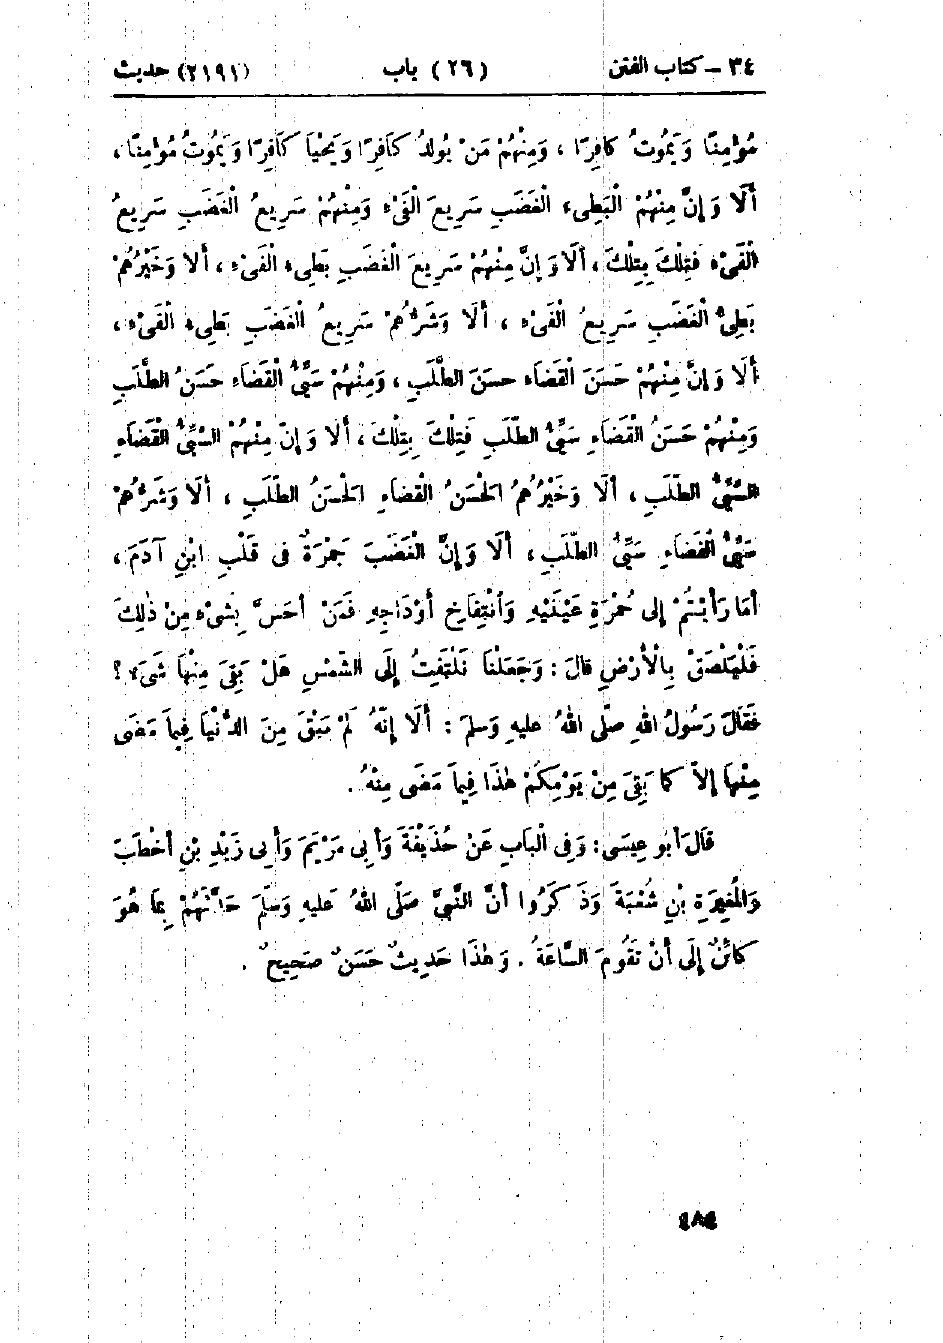 ٣٤ – كتاب الفتن (٢٦) باب (٢١٩١) حديث
مُؤْمِنًا وَيَمُوتُ كافِرًا ، وَمِنْهُمْ مَنْ يُولَدُ كَافِرًا وَيَحْيَا كَافِرًا وَيَمُوتُ مُؤمِنًا ،
أَلَا وَإِنَّ مِنْهُمْ الْبَطِيء الْغَضَبِ سَرِيعَ الْفَيْءِ وَمِنْهُمْ سَرِيعُ الْغَضَبِ سَرِيعُ
الْفَيْءِ فَتِلْكَ بِتِلْكَ ، أَلَا وَإِنَّ مِنْهُمْ سَرِيعَ الْغَضَبِ بَطِيء الْفَيْءِ ، أَلا وَخَيْرُهُمْ
بَطِئُ الْغَضَبِ سَرِيعُ الْفَيْءِ ، أَلَا وَشَرُّهُمْ سَرِيعُ الْغَضَبِ بَطِيء الْفَيْءِ ،
أَلَا وَإِنَّ مِنْهُمْ حَسَنَ الْقَضَاءِ حسَنَ الطَّلَبِ ، وَمِنْهُمْ سَيِّئُ الْقَضَاءِ حَسَنُ الطَّلَبِ
وَمِنْهُمْ حَسَنُ الْقَضَاءِ سَيِّئُ الطَّلَبِ فَتِلْكَ بِتِلْكَ ، أَلَا وَإِنَّ مِنْهُمْ السَّيِّئُ الْقَضَاءِ
السَّيِّئُ الطَّلَبِ ، أَلَا وَخَيْرُهُمُ الْحَسَنُ الْقَضَاءِ الْحَسَنُ الطَّلَبِ ، أَلَا وَشَرُّهُمْ
سَيِّئُ الْقَضَاءِ سَيِّئُ الطَّلَبِ ، أَلَا وَإِنَّ الْغَضَبَ جَمْرَةٌ فى قَلْبِ ابْنِ آدَمَ ،
أمَا رَأَيْتُمْ إلى حُمْرَةِ عَيْنَيْهِ وَانْتِفَاخِ أَوْدَاجِهِ فَمَنْ أحَسَّ بِشَىْءٍ مِنْ ذٰلِكَ
فَلْيَلْصَقْ بِالْأَرْضِ قالَ : وَجَعَلْنَا نَلْتَفِتُ إِلَى الشَّمْسِ هَلْ بَقِىَ مِنْهَا شَىْءٌ ؟
فَقَالَ رَسُولُ اللهِ صلَّى اللهُ عليهِ وَسلمَ : أَلَا إِنَّهُ لَمْ يَبْقَ مِنَ الدُّنْيَا فِيمَا مَضَى
مِنْهَا إِلاَّ كَمَا بَقِىَ مِنْ يَوْمِكُمْ هٰذَا فِيمَا مَضَى مِنْهُ .
قَالَ أَبُو عِيسَى : وَفى الْبَابِ عَنْ حُذَيْفَةَ وَأَبِى مَرْيَمَ وَأَبِى زَيْدِ بْنِ أَخْطَبَ
وَالْمُغِيرَةِ بْنِ شُعْبَةَ وَذَكَرُوا أَنَّ النَّبِيَّ صَلَّى اللهُ عَليهِ وَسَلَّمَ حَدَّثَهُمْ بِمَا هُوَ
كائنٌ إِلَى أَنْ تَقُومَ السَّاعَةُ . وَهٰذَا حَدِيثٌ حَسَنٌ صَحِيحٌ .